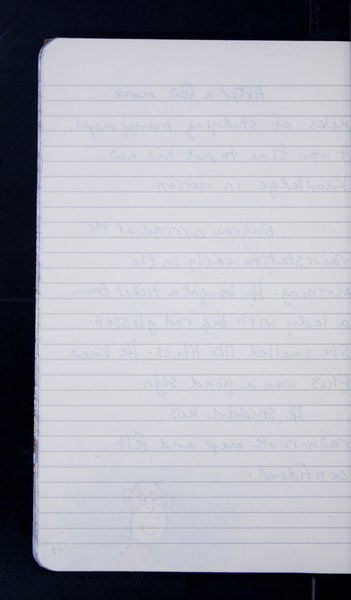 After a few more
weeks of studying many maps
it was time to put his new
knowledge in motion.
Eugene arrived at the
train station early in the
morning. He bought a ticket from
a lady with big red glasses.
She smelled like lilacs. He knew
this was a good sign.
He studied his
train route map and felt
confident.